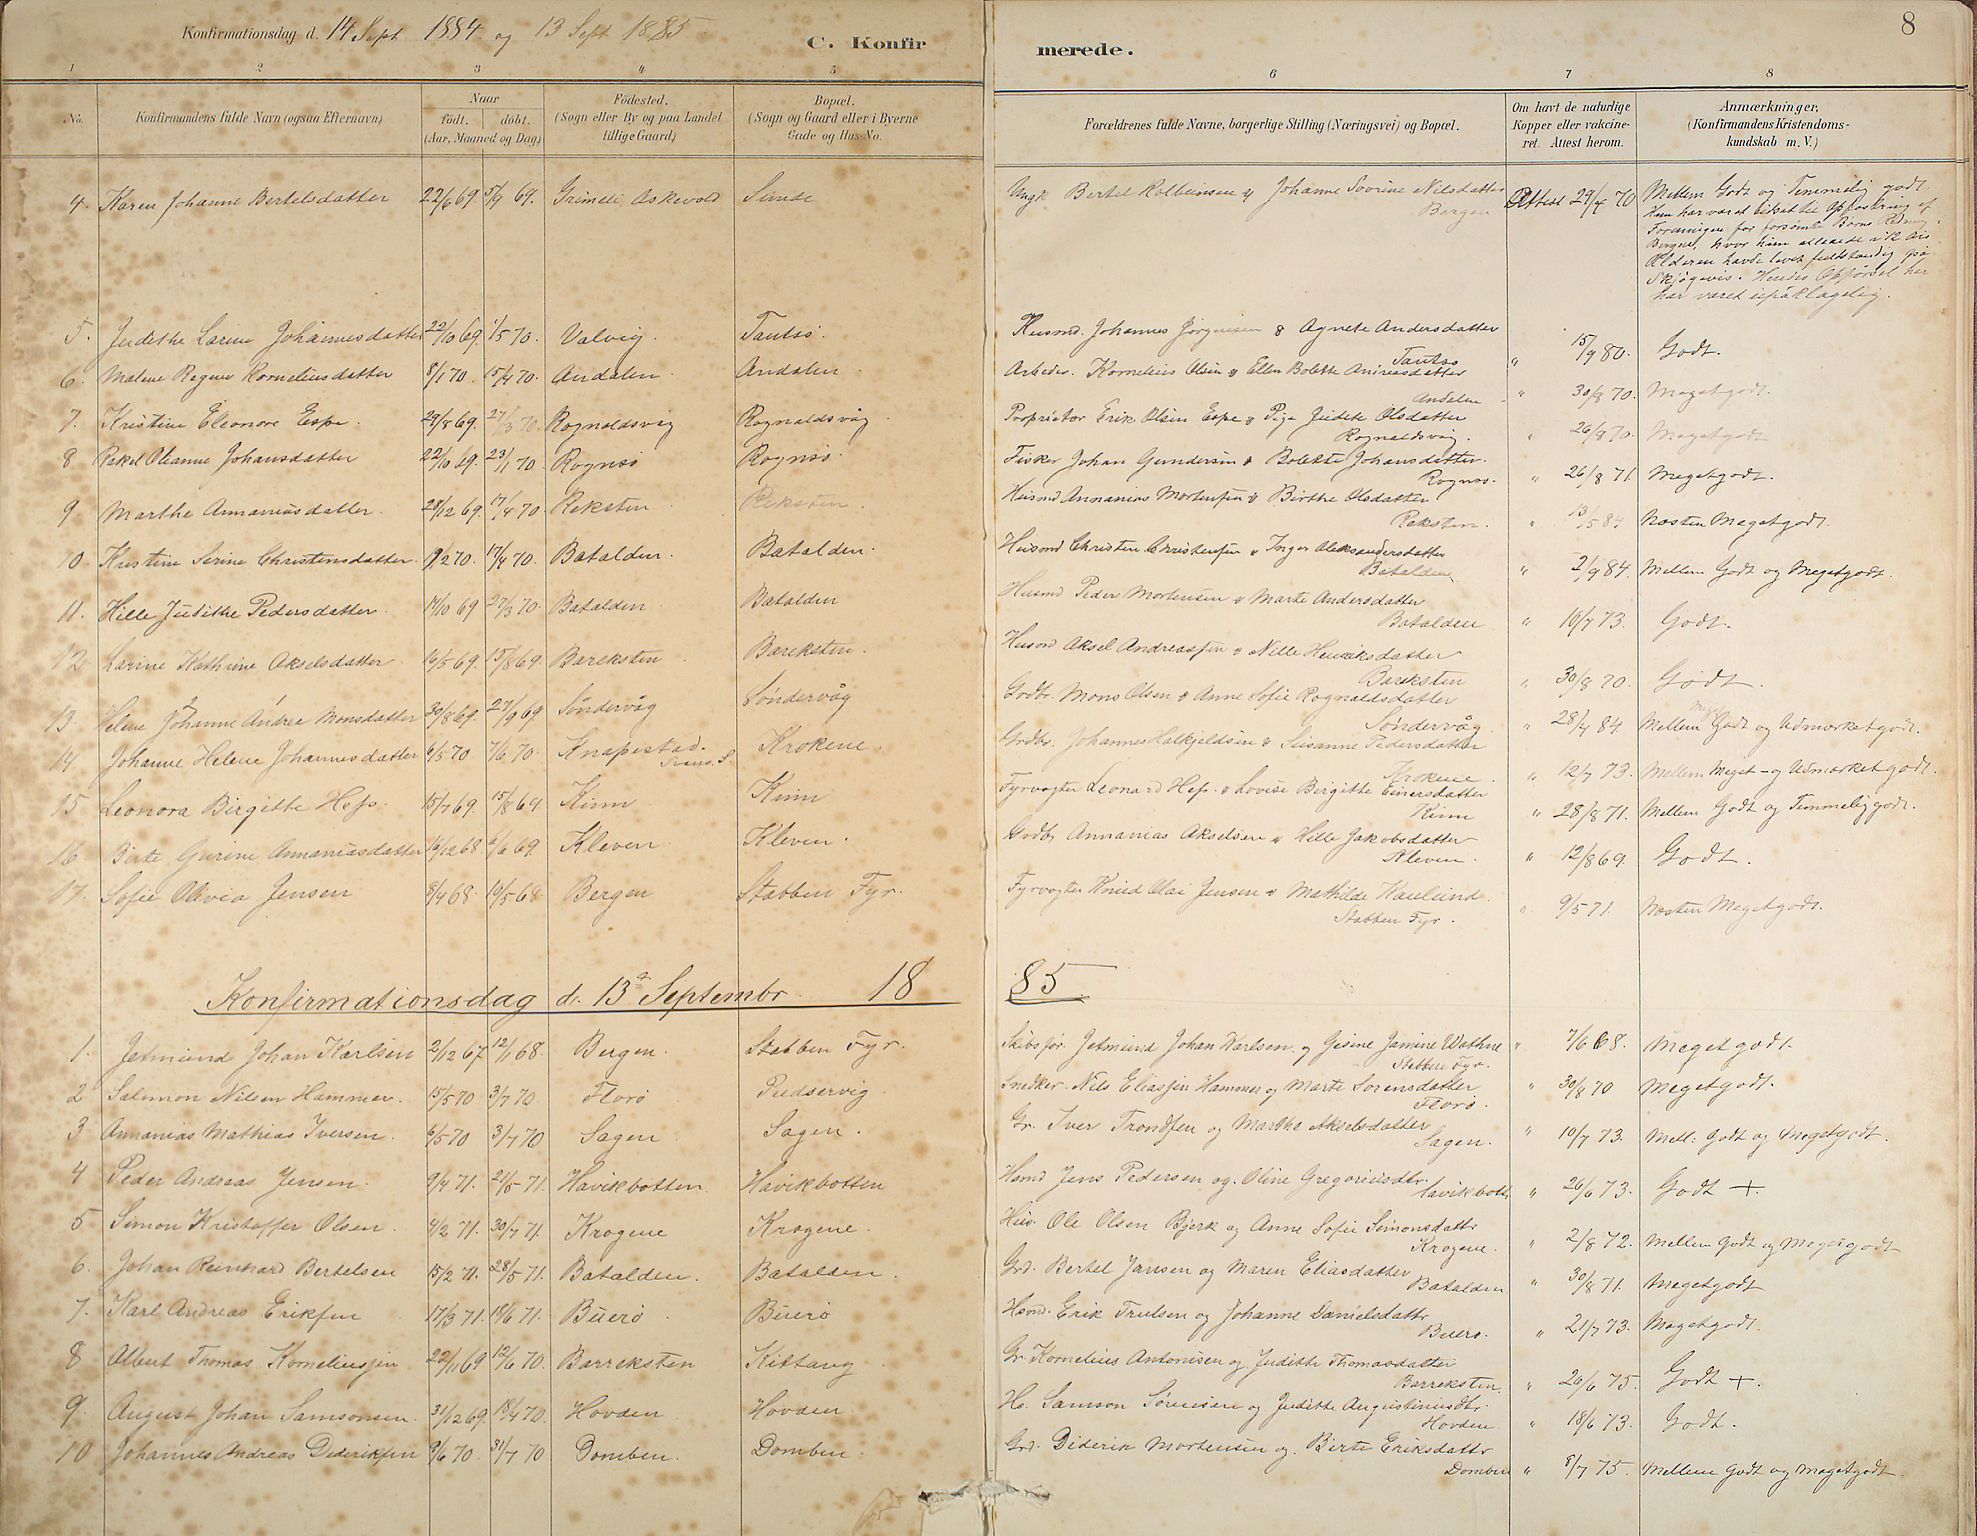 8
Konfirmationsdag d. 14 Sept 1884. og 13 Sept 1885.
C. Konfirmerede.
1 2 3 4 5 6 7 8
No.
Konfirmandens fulde Navn (ogsaa Efternavn)
Naar
født. døbt.
(Aar, Maaned og Dag)
Fødested.
(Sogn eller By og paa Landet
tillige Gaard)
Bopæl.
(Sogn og Gaard eller i Byerne
Gade og Hus-No.
Forældrenes fulde Navne, borgerlige Stilling (Næringsvei) og Bopæl.
Om havt de naturlige
Kopper eller vakcine-
ret. Attest herom.
Anmærkninger,
(Konfirmandens Kristendoms-
kundskab m. V.)
4. Karen Johanne Bertelsdatter 22/6 69. 5/9 69. Grimeli, Askevold Sunde Ungk Bertel Kolbeinsen & Johanne Sovrine Nilsdatter Attest 29/4 70 Mellem Godt og Temmelig godt.
Bergen
Hun har været udsat til Opfostring af
Foreningen for forsømte Børns Redning
Bergen, hvor hun allerede i 12 Års
Alderen havde levet fuldstændig på
Skjøgevis. Hendes Opførsel her
har været upåklagelig.
5. Judithe Larine Johannesdatter 22/10 69. 1/5 70. Valvig. Tautsø. Husmd. Johannes Jørgensen & Agnete Andersdatter " 15/9 80. Godt.
Tautsø
6. Malene Regine Korneliusdatter 8/1 70. 15/4 70. Andalen. Andalen. Arbeder. Kornelius Olsen & Ellen Bolette Andreasdatter " 30/8 70. Megetgodt.
Andalen
7. Kristine Eleonore Espe. 29/8 69. 27/3 70. Rognaldsvåg Rognaldsvåg Proprietær Erik Olsen Espe & Pige Judete Olsdatter " 26/8 70. Megetgodt
Rognaldsvåg.
8 Rakel Olianne Johansdatter 22/10 69. 23/1 70 Rognsø Rognsø. Fisker Johan Gundersen & Bolette Johansdatter. " 26/8 71. Megetgodt.
Rognsø.
9 Marthe Annaniasdatter. 28/12 69. 17/4 70. Reksten Reksten. Husmd Annanias Mortensen & Birthe Olsdatter " 13/5 84 Næsten Megetgodt.
Reksten.
10 Kristine Serine Christensdatter. 9/2 70. 17/4 70. Batalden. Batalden. Husmd Christen Christensen & Inger Aleksandersdatter " 2/9 84. Mellem Godt og Megetgodt.
Batalden
11. Hille Judithe Pedersdatter. 14/10 69 27/3 70. Batalden Batalden Husmd Peder Mortensen & Marte Andersdatter " 10/7 73. Godt.
Batalden
12 Larine Kathrine Akselsdatter. 16/5 69. 15/8 69. Bareksten Bareksten. Husmd Aksel Andreassen & Nille Henriksdatter " 30/8 70. Godt.
Bareksten
13. Helene Johanne Andrea Monsdatter 30/8 69. 27/9 69. Søndervåg Søndervåg Grdbr. Mons Olsen & Anne Sofie Rognaldsdatter " 28/4 84. Mellem Meget Godt og Udmærketgodt.
Søndervåg
14 Johanne Helene Johannesdatter 6/5 70 7/6 70. Knapestad. Svans. S. Krokene. Grdbr. Johannes Halkjeldsen & Susanne Pedersdatter " 12/7 73. Mellem Meget- og Udmærketgodt.
Krokene.
15 Leonora Birgitte Hess. 15/7 69. 15/8 69 Kinn Kinn Fyrvogter Leonard Hess. & Lovise Birgitte Einersdatter " 28/8 71. Mellem Godt og Temmeliggodt.
Kinn
16. Birte Gurine Annaniasdatter 16/12 68 6/6 69. Kleven. Kleven. Grdbr Annanias Akselsen & Hille Jakobsdatter " 12/8 69. Godt.
Kleven.
17. Sofie Olivia Jensen 8/4 68 10/5 68 Bergen Stabben Fyr. Fyrvogter Knud Olai Jensen & Mathilde Kaulund. " 9/5 71. Næsten Megetgodt.
Stabben Fyr.
Konfirmationsdag d. 13de Septembr. 1885
1. Jetmund Johan Karlsen 2/12 67 12/1 68. Bergen. Stabben Fyr. Skibsfør. Jetmund Johan Karlsen. og Gisine Jamine Wathne " 7/6 68. Megetgodt.
Stabben Fyr.
2 Salomon Nilsen Hammer. 15/5 70 3/7 70. Florø Pudservig. Snedker. Nils Eliassen Hammer og Marte Sørensdatter " 30/8 70 Megetgodt.
Florø.
3 Annanias Mathias Iversen. 6/5 70 3/7 70 Sagen Sagen. Gr. Iver Trondsen og Marthe Akselsdatter " 10/7 73. Mell. Godt og Megetgodt.
Sagen.
4 Peder Andreas Jensen. 9/4 71. 21/5 71. Havikbotten. Havikbotten Hsmd Jens Pedersen og. Oline Gregoriusdtr. " 26/6 73. Godt +.
Havikbott.
5 Simon Kristoffer Olsen. 4/2 71. 30/7 71. Krogene Krogene. Huv. Ole Olsen Bjerk og Anne Sofie Simonsdatr " 2/8 72. Mellem Godt og Megetgodt
Krogene.
6. Johan Reinhard Bertelsen 15/2 71. 28/5 71. Batalden. Batalden. Grd. Bertel Jansen og Maren Eliasdatter " 30/8 71. Megetgodt
Batalden
7. Karl Andreas Eriksen 17/3 71. 18/6 71. Buerø Buerø Hsmd. Erik Trulsen og Johanne Danielsdatr " 21/7 73. Megetgodt.
Buerø.
8 Albert Thomas Korneliussen 22/11 69 12/6 70. Barreksten Kittang Gr. Kornelius Antonisen og. Judithe Thomasdatter " 26/6 75. Godt +.
Barreksten.
9. August Johan Samsonsen. 31/12 69. 18/4 70. Hovden Hovden. Hs. Samson Sørensen og Judithe Augustinusdtr. " 18/6 73. Godt.
Hovden
10 Johannes Andreas Dideriksen 9/6 70. 31/7 70 Domben. Domben. Grd. Diderik Mortensen og. Birte Eriksdatr " 8/7 75. Mellem Godt og Megetgodt.
Domben